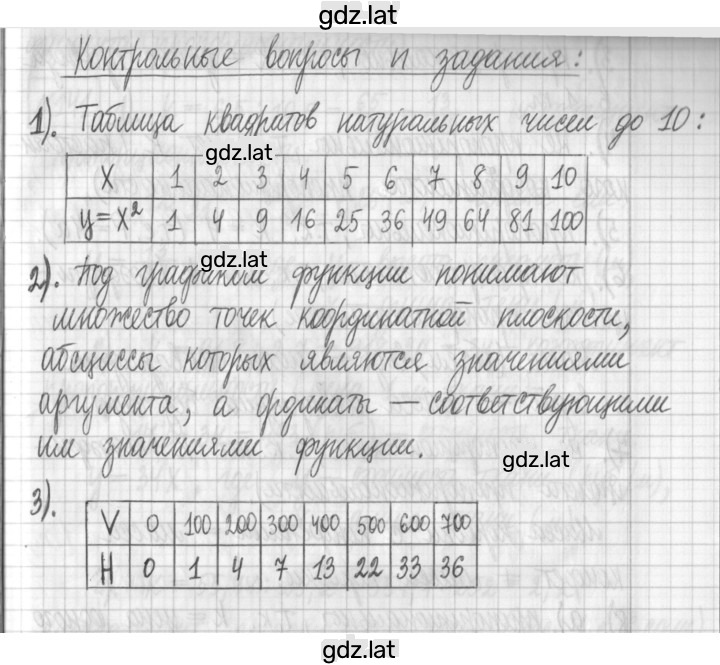 gdz.lat
Контрольные вопросы и задания:
1). Таблица квадратов натуральных чисел до 10:
gdz.lat
X 1 2 3 4 5 6 7 8 9 10
y=x² 1 4 9 16 25 36 49 64 81 100
gdz.lat
2). Под графиком функции понимают
множество точек координатной плоскости,
абсциссы которых являются значениями
аргумента, а ординаты — соответствующими
им значениями функции.
gdz.lat
3).
V 0 100 200 300 400 500 600 700
H 0 1 4 7 13 22 33 36
gdz.lat